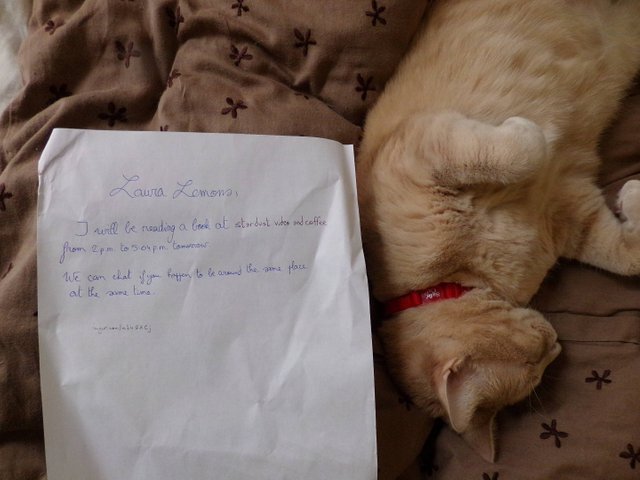 Laura Lemons,
I will be reading a book at stardust video and coffee
from 2 p.m. to 5:04 p.m. tomorrow.
We can chat if you happen to be around the same place
at the same time.